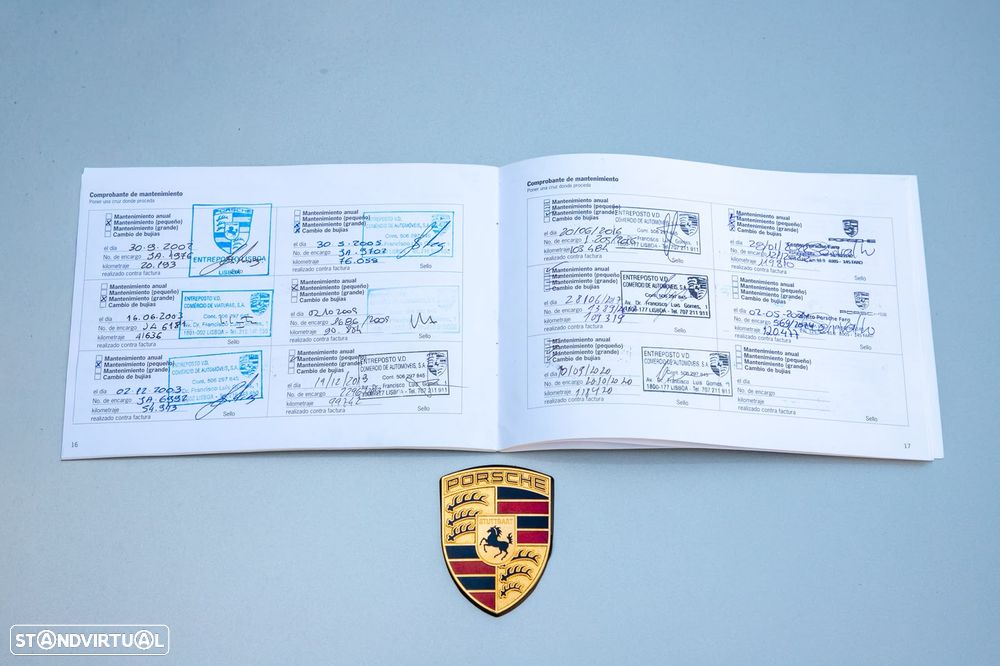 Comprobante de mantenimiento
Poner una cruz donde proceda
Mantenimiento anual
Mantenimiento (pequeño)
Mantenimiento (grande)
Cambio de bujías
el día 30.9.2002
No. de encargo JA 1976
kilometraje 20.193
realizado contra factura
Sello
PORSCHE
ENTREPOSTO LISBOA
LISBOA
Mantenimiento anual
Mantenimiento (pequeño)
Mantenimiento (grande)
Cambio de bujías
el día 30.9.2005
No. de encargo JA 9707
kilometraje 76.055
realizado contra factura
Sello
ENTREPOSTO V.D.
COMERCIO DE AUTOMOVEIS, S.A.
Cont. 506 297 845
Mantenimiento anual
Mantenimiento (pequeño)
Mantenimiento (grande)
Cambio de bujías
el día 16.06.2003
No. de encargo JA 6181
kilometraje 41636
realizado contra factura
Sello
ENTREPOSTO V.D.
COMÉRCIO DE VIATURAS, S.A.
Mantenimiento anual
Mantenimiento (pequeño)
Mantenimiento (grande)
Cambio de bujías
el día 02.10.2009
No. de encargo 3686/2009
kilometraje 90.804
realizado contra factura
Sello
Mantenimiento anual
Mantenimiento (pequeño)
Mantenimiento (grande)
Cambio de bujías
el día 02.12.2003
No. de encargo JA 6992
kilometraje 54.943
realizado contra factura
Sello
ENTREPOSTO V.D.
COMERCIO DE AUTOMOVEIS, S.A.
Cont. 506 297 845
Mantenimiento anual
Mantenimiento (pequeño)
Mantenimiento (grande)
Cambio de bujías
el día 19/12/2013
No. de encargo
kilometraje 99242
realizado contra factura
Sello
ENTREPOSTO V.D.
COMERCIO DE AUTOMOVEIS, S.A.
Cont. 506 297 845
16
Comprobante de mantenimiento
Poner una cruz donde proceda
Mantenimiento anual
Mantenimiento (pequeño)
Mantenimiento (grande)
Cambio de bujías
el día 20/06/2016
No. de encargo
kilometraje 103484
realizado contra factura
Sello
ENTREPOSTO V.D.
COMERCIO DE AUTOMOVEIS, S.A.
Cont. 506 297 845
Mantenimiento anual
Mantenimiento (pequeño)
Mantenimiento (grande)
Cambio de bujías
el día
No. de encargo
kilometraje 119810
realizado contra factura
Sello
Mantenimiento anual
Mantenimiento (pequeño)
Mantenimiento (grande)
Cambio de bujías
el día
No. de encargo
kilometraje 107319
realizado contra factura
Sello
ENTREPOSTO V.D.
COMERCIO DE AUTOMOVEIS, S.A.
Cont. 506 297 845
Av. Dr. Francisco Luís Gomes, 1
1800-177 LISBOA - Tel. 707 211 911
Mantenimiento anual
Mantenimiento (pequeño)
Mantenimiento (grande)
Cambio de bujías
el día
No. de encargo
kilometraje
realizado contra factura
Sello
Mantenimiento anual
Mantenimiento (pequeño)
Mantenimiento (grande)
Cambio de bujías
el día 10/09/2020
No. de encargo
kilometraje 118420
realizado contra factura
Sello
ENTREPOSTO V.D.
COMERCIO DE AUTOMOVEIS, S.A.
Cont. 506 297 845
Av. Dr. Francisco Luís Gomes, 1
1800-177 LISBOA - Tel. 707 211 911
Mantenimiento anual
Mantenimiento (pequeño)
Mantenimiento (grande)
Cambio de bujías
el día
No. de encargo
kilometraje
realizado contra factura
Sello
17
PORSCHE
STUTTGART
STANDVIRTUAL